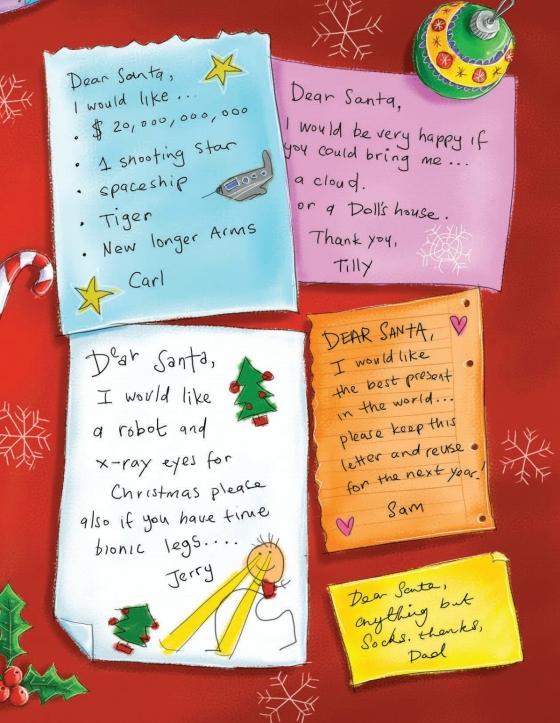 Dear Santa,
I would like ...
• $ 20,000,000,000
• 1 shooting star
• spaceship
• Tiger
• New longer Arms
Carl
Dear Santa,
I would be very happy if
you could bring me ...
a cloud.
or a Doll's house.
Thank you,
Tilly
Dear Santa,
I would like
a robot and
x-ray eyes for
Christmas please
also if you have time
bionic legs....
Jerry
DEAR SANTA,
I would like
the best present
in the world...
please keep this
letter and reuse
for the next year!
Sam
Dear Santa,
anything but
Socks. thanks,
Dad